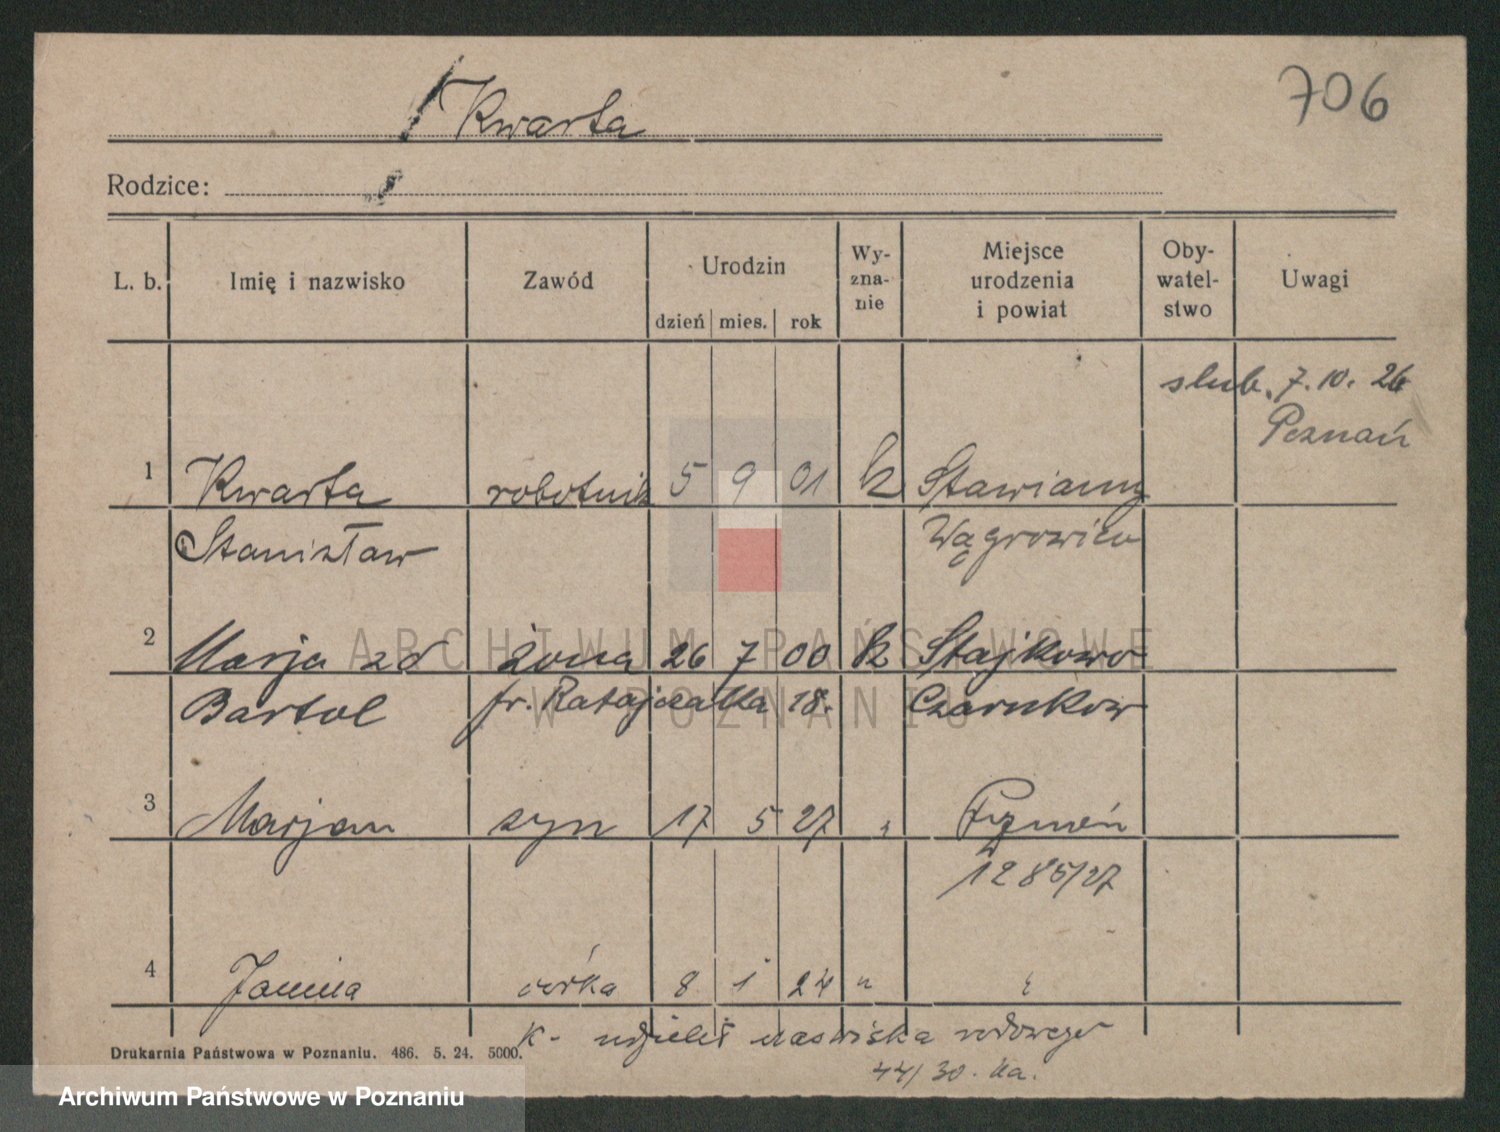 706
Kwarta
Rodzice:
L. b. Imię i nazwisko Zawód Urodzin dzień mies. rok Wy-zna-nie Miejsce urodzenia i powiat Oby-watel-stwo Uwagi
slub. 7.10. 26
Poznań
1 Kwarta robotnik 5 9 01 k Stawiany
Stanisław Wągrowiec
2 Marja zd żona 26 7 00 k Stajkowo
Bartol fr. Ratajczaka 18. Czarnków
3 Marjan syn 17 5 27 " Poznań
1285/27
4 Janina córka 8 1 24 " "
K- udzielił nazwiska rodowego
44/30.
Drukarnia Państwowa w Poznaniu. 486. 5. 24. 5000.
ARCHIWUM PAŃSTWOWE
W POZNANIU
Archiwum Państwowe w Poznaniu